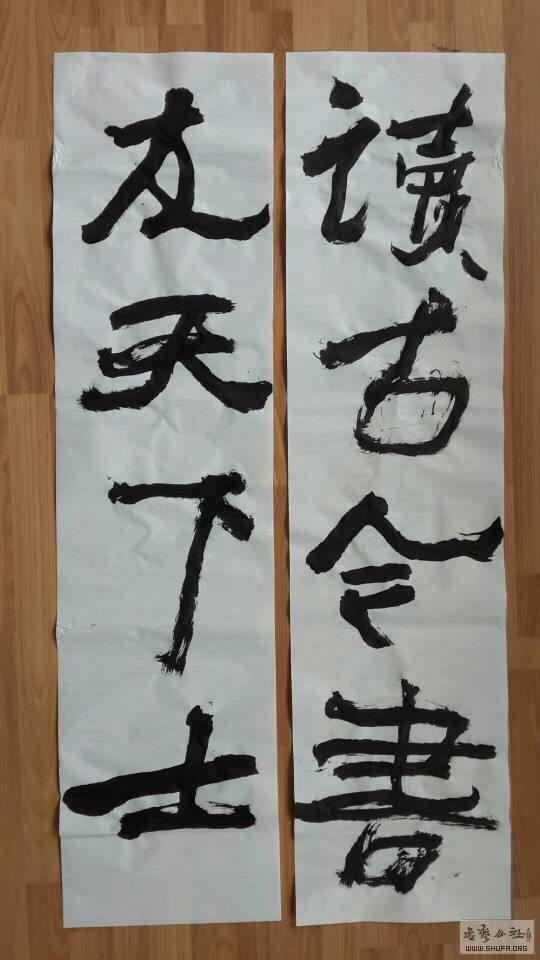 讀古今書
友天下士
书艺公社
WWW.SHUFA.ORG